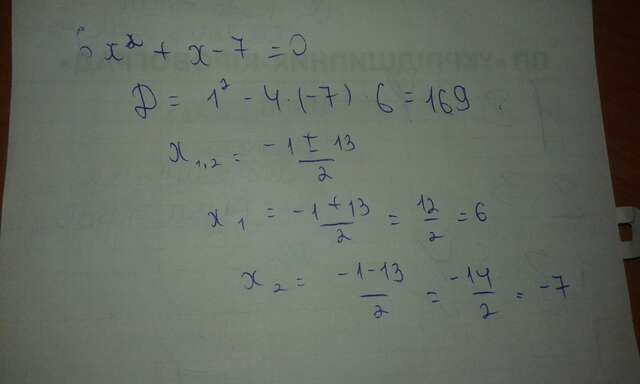 6x² + x - 7 = 0
D = 1² - 4·(-7)·6 = 169
x₁,₂ = (-1 ± 13)/2
x₁ = (-1 + 13)/2 = 12/2 = 6
x₂ = (-1 - 13)/2 = -14/2 = -7